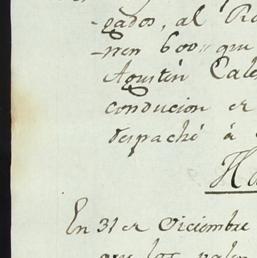 -gados, al R
-nen 600,, que
Agustin Cale
conducion e
despaché à
Ha
En 31 de Diciembre
que los